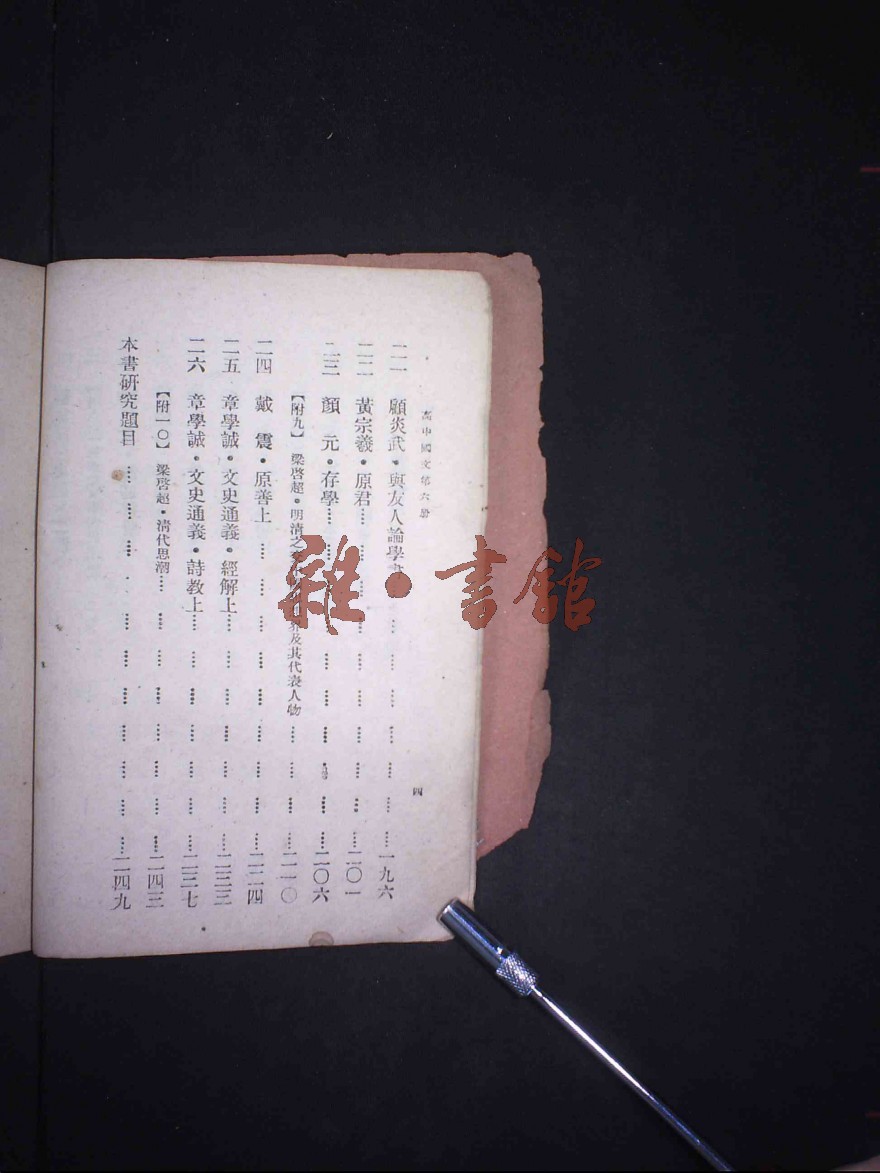 高中國文第六册
四
二一 顧炎武•與友人論學書…………一九六
二二 黃宗羲•原君…………二〇一
二三 顏 元•存學…………二〇六
【附九】 梁啓超•明清之 及其代表人物…………二一〇
二四 戴 震•原善上…………二二四
二五 章學誠•文史通義•經解上…………二三三
二六 章學誠•文史通義•詩教上…………二三七
【附一〇】 梁啓超•清代思潮…………二四三
本書研究題目…………二四九
雜•書館